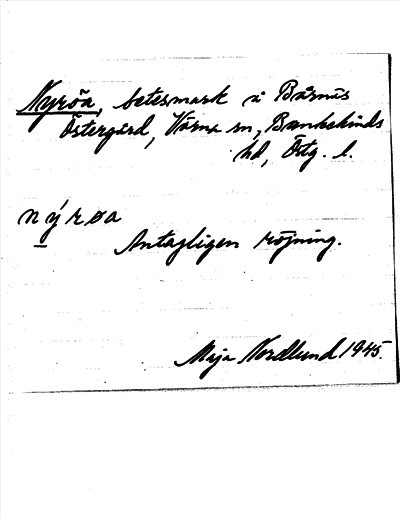 Nyröa, betesmark å Bårnäs
Östergård, Vårna sn, Bankekinds
hd, Östg. l.
nýrøa
Antagligen röjning.
Maja Nordlund 1945.